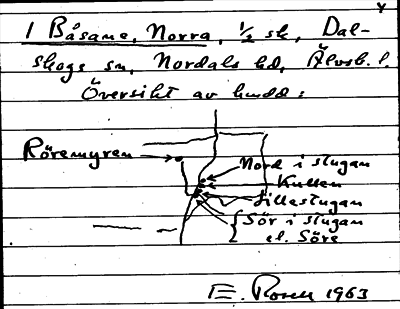 1 Båsane, Norra, ½ sk, Dal-
skogs sn, Nordals hd, Älvsb. l.
Översikt av hudd:
Röremyren
Nord i stugan
Kullen
Lillestugan
Sör i stugan
el. Söre
E. Rosell 1963